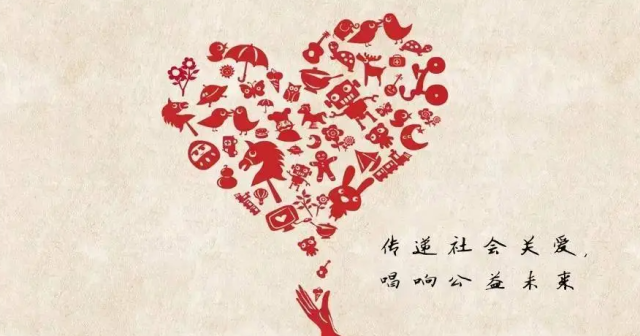 传递社会关爱,
唱响公益未来